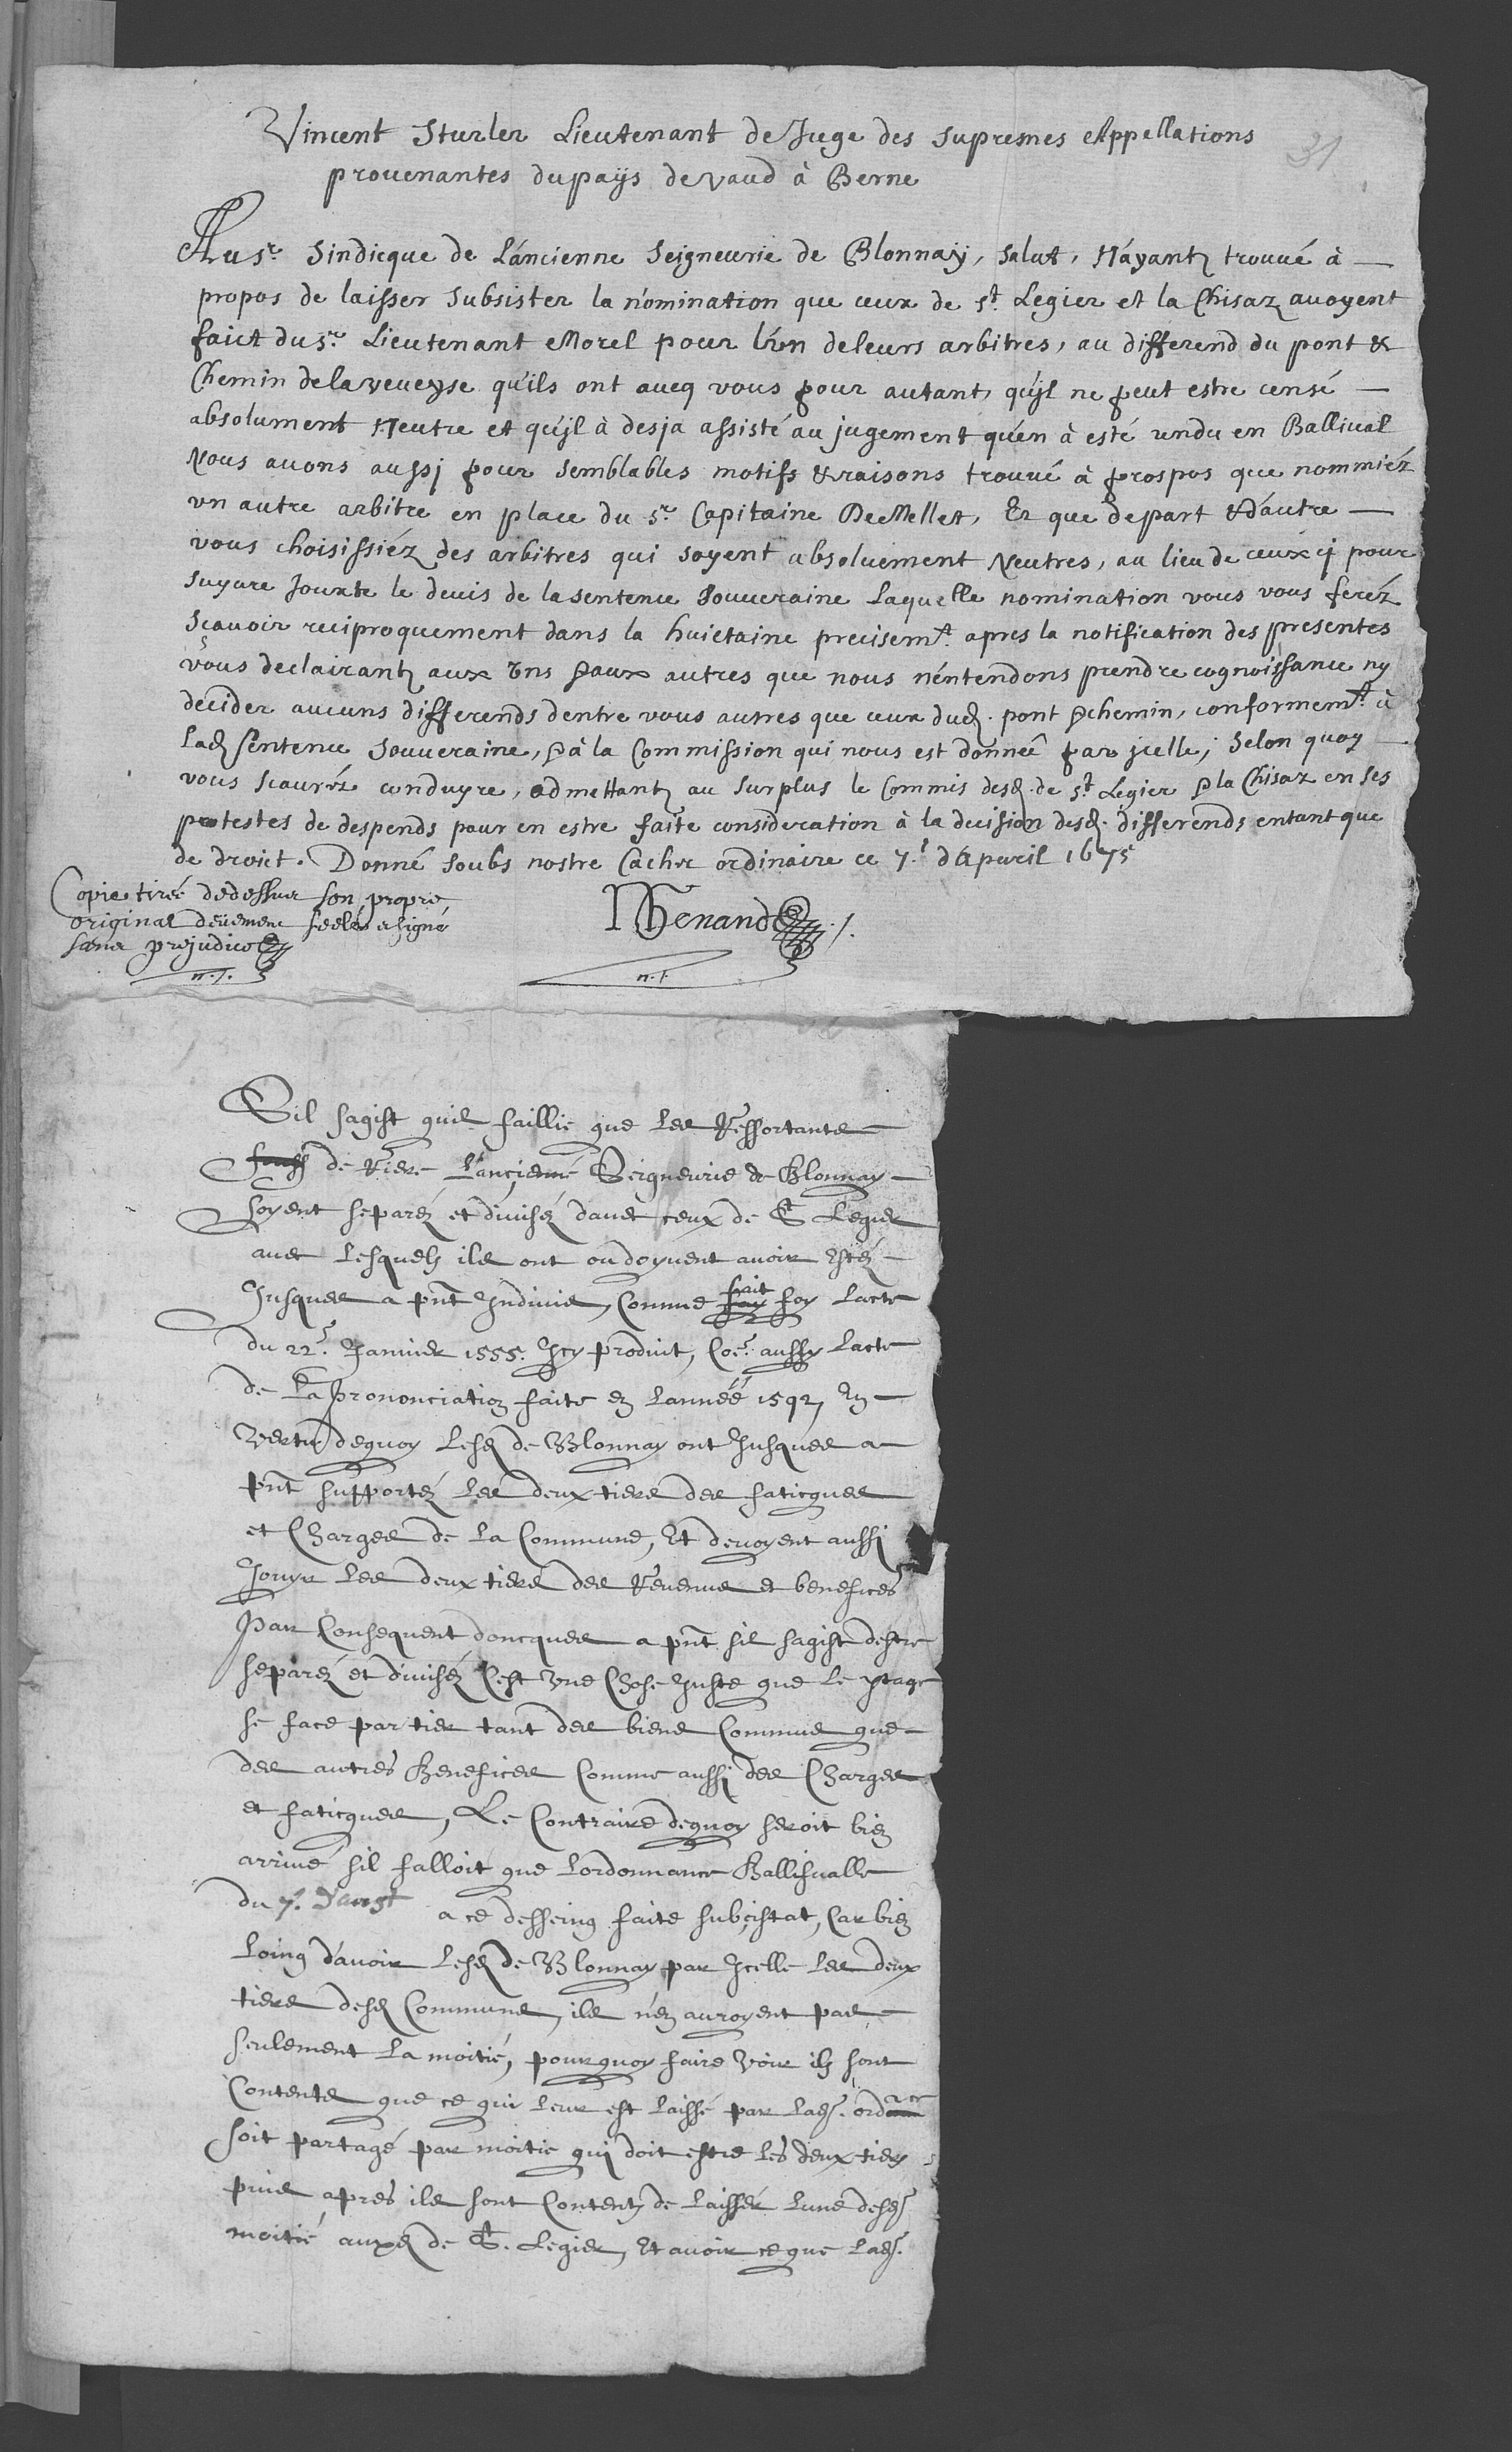 31
Vincent Sturler Lieutenant de Juge des supresmes Appellations
prouenantes du paÿs de vaud à Berne
Au sr. Sindicque de L'áncienne Seigneurie de Blonnaÿ, salut, N'áyant trouué à
propos de laisser subsister la nómination que ceux de st. Legier et la Chisaz auoyent
faict du sr. Lieutenant Morel pour l'vn de leurs arbitres, au differend du pont &
Chemin de la veueyse qu'ils ont aueq vous pour autant, qu'jl ne peut estre censé
absolument Neutre et qu'jl à desja assisté au jugement qu'en à esté rendu en Balliual
Nous auons aussj pour semblables motifs & raisons trouué à prospos que nommiéz
vn autre arbitre en place du sr. Capitaine DeMellet, Et que de part & d'autre
vous choisissiéz des arbitres qui soyent absoluement Neutres, au lieu de ceux cj pour
suyure jouxte le deuis de la sentence souueraine Laquelle nomination vous vous feréz
sçauoir reciproquement dans la huictaine precisemt. apres la notification des presentes
vous declairant aux vns & aux autres que nous n'éntendons prendre cognoissance ny
decider aucuns differends d'entre vous autres que ceux dud. pont & chemin, conformemt. à
lad sentence souueraine, & à la Commission qui nous est donneê par jcelle, selon quoy
vous scauréz conduyre, admettant au surplus le Commis desd. de st Legier & la Chisaz en ses
protestes de despends pour en estre faite consideration à la decision desd. differends entant que
de droict. Donné soubs nostre Cachet ordinaire ce 7.e d'Apuril 1675
Copie tirée de dessus son propre
original deuement seelé et signé
sans prejudice
n.t.
Henand
n.t.
S'il sagist quil faillie que les Ressortants
de Riere L'ancienne Seigneurie de Blonnay
soyent separéz et diuiséz dauec ceux de St Legier
auec lesquels ils ont ou doyuent auoir estéz
Jusques a pnt Indiuis, Comme fait foy lacte
du 22e. Januier 1555. Icy produit, Coe. aussy lacte
de La prononciation faite en Lannéé 1592, En
vertu dequoy lesd de Blonnay ont Jusques a
pnt supportéz les deux tiers des faticques
et Charges de la Commune, Et deuoyent aussi
Jouyr les deux tiers des Reuenus et benefices
Par Consequent doncques a pnt sil sagist destre
separéz et diuiséz C'est vne Chose juste que le ptage
se face par tier tant des biens Communs que
des autres Benefices Comme aussi des Charges
et faticques, Le Contraire dequoy seroit bien
arriué sil falloit que Lordonnance Ballifualle
du 7. D'aoust a ce desseing faite subcistat, Car bien
Loing d'auoir lesd de Blonnay par Icelle les deux
tiers desd Communs, ils n'en auroyent pas
seulement La moitié, pourquoy faire voir ils sont
Contents que ce qui leur est laissé par lad. ordace
soit partagé par moitie qui doit estre les deux tiers
puis apres ils sont Contents de laisser lune desd
moitié auxd de St. Legier, Et auoir ce que lad.